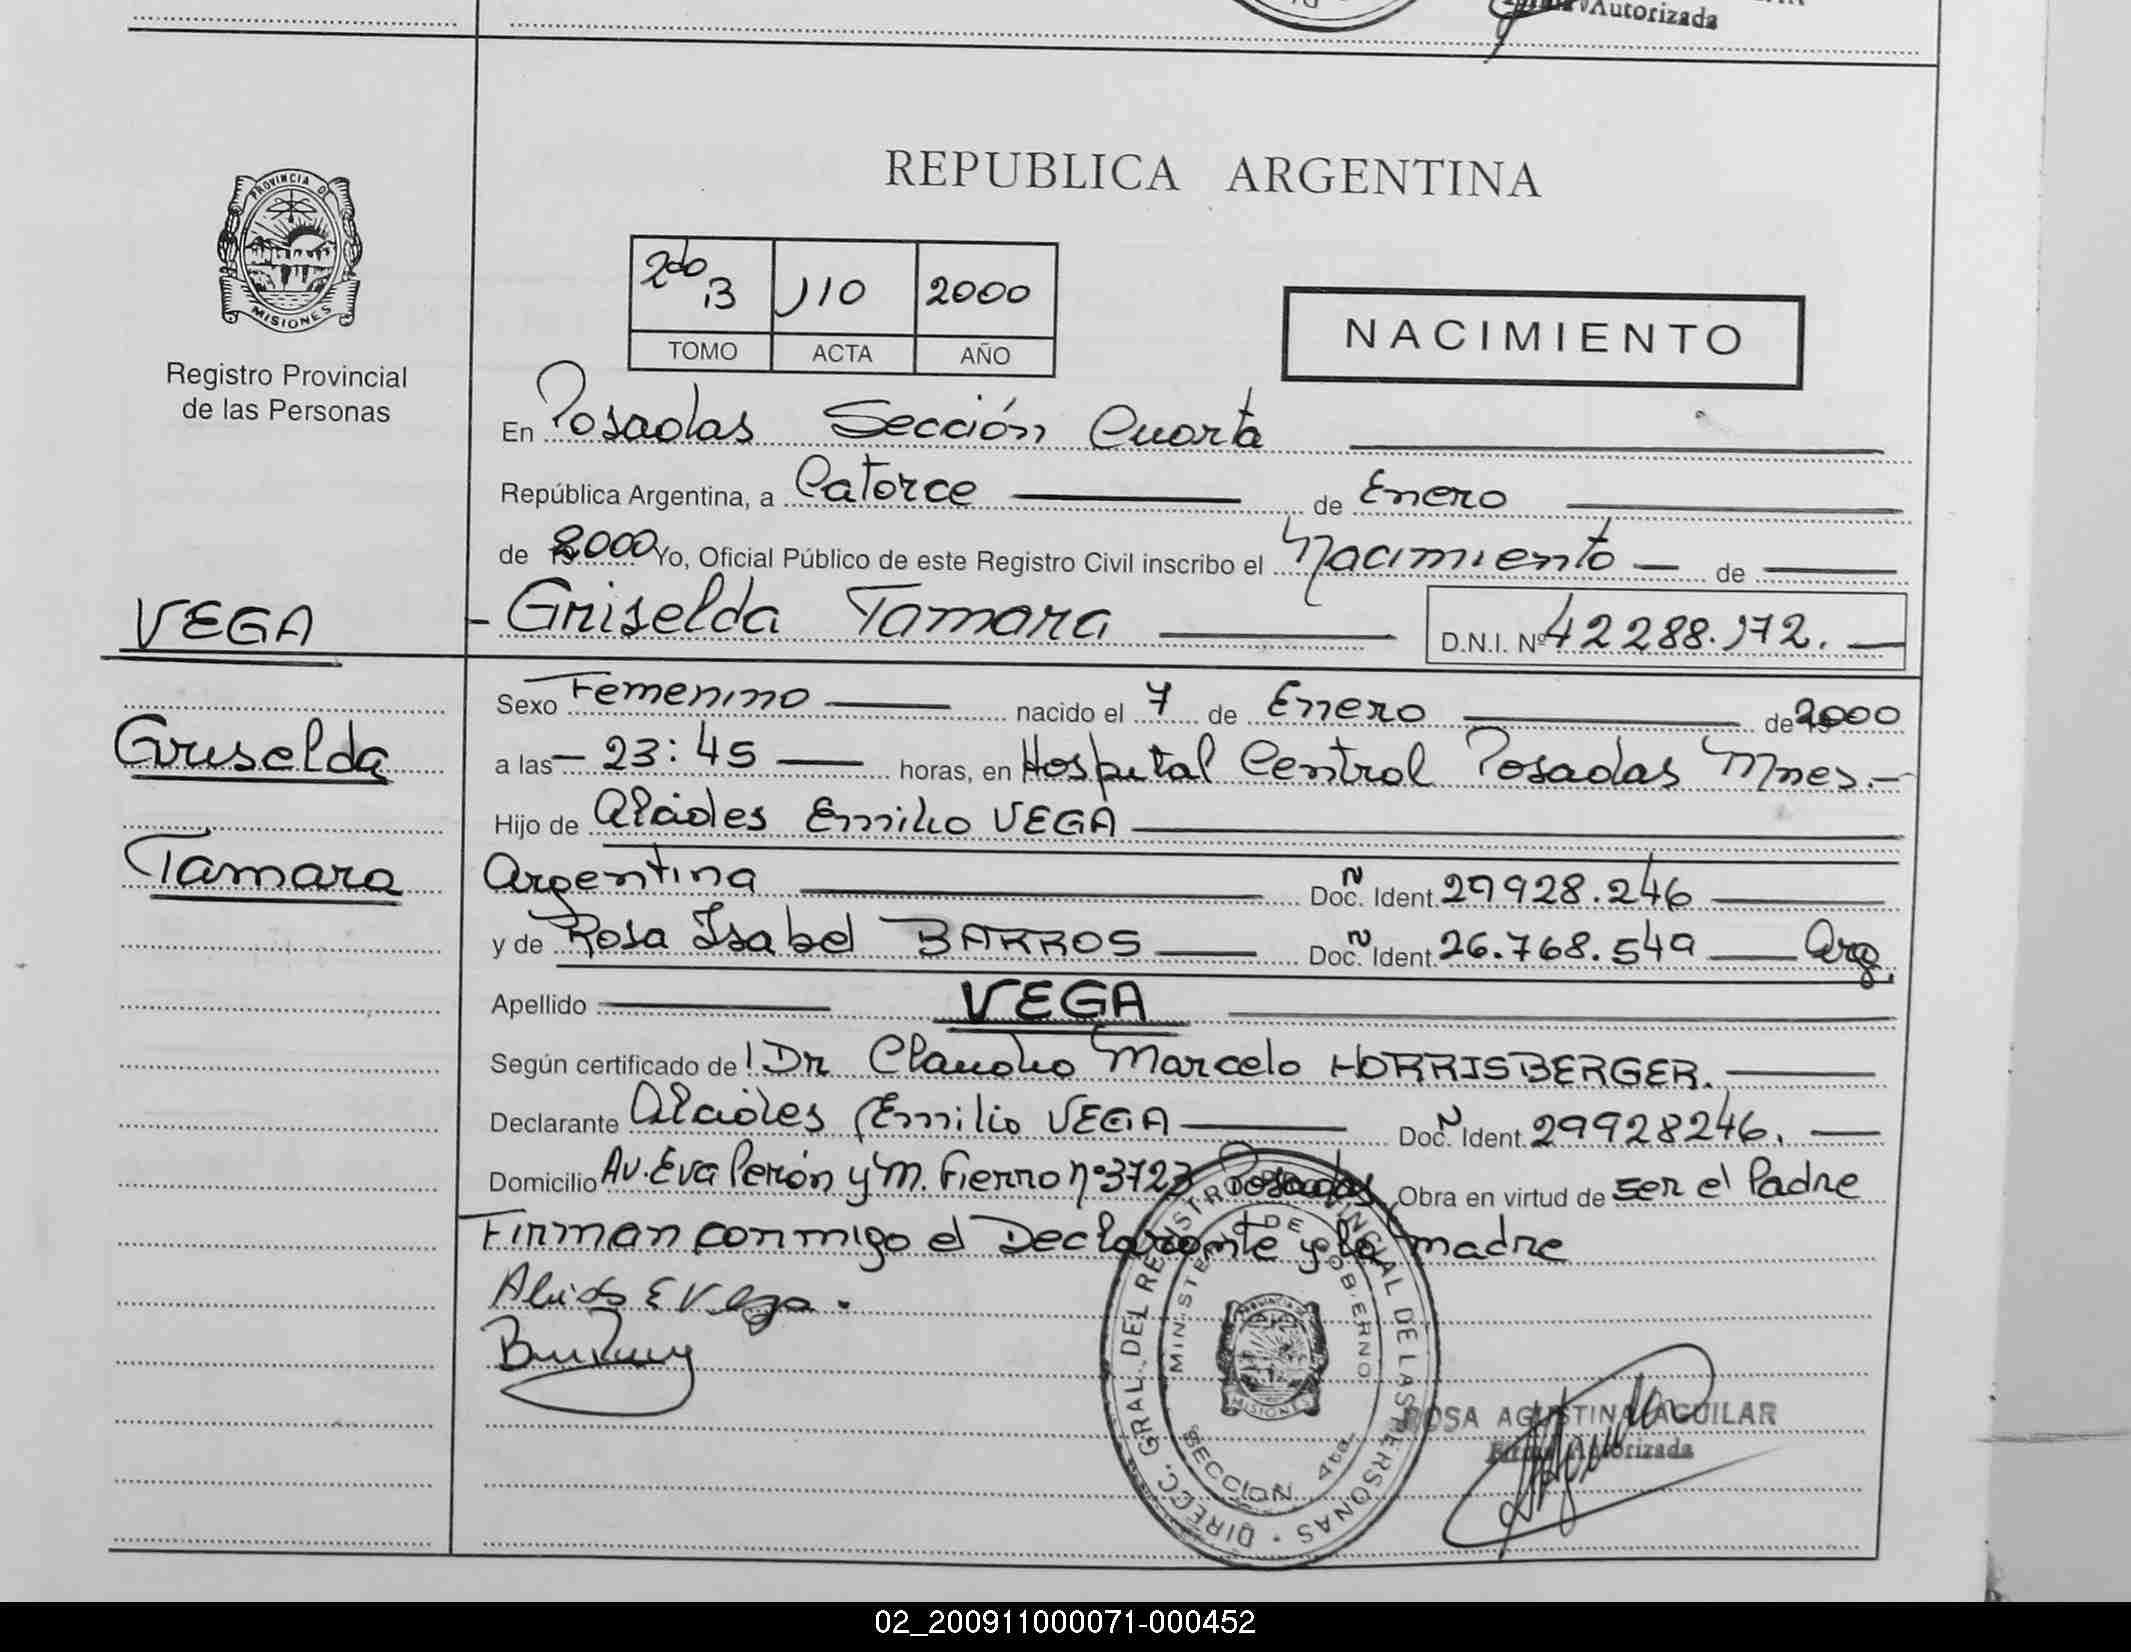 Autorizada
PROVINCIA DE
MISIONES
Registro Provincial
de las Personas
REPUBLICA ARGENTINA
2do 13 110 2000
TOMO ACTA AÑO
NACIMIENTO
En Posadas Sección Cuarta
República Argentina, a Catorce de Enero
de 2000 Yo, Oficial Público de este Registro Civil inscribo el Nacimiento de
VEGA - Griselda Tamara D.N.I. Nº 42288.172.
Sexo Femenino nacido el 7 de Enero de 2000
Griselda
a las - 23:45 horas, en Hospital Central Posadas Mnes.-
Hijo de Alcides Emilio VEGA
Tamara
Argentina Doc. Ident. Nº 29928.246
y de Rosa Isabel BARROS Doc. Ident. Nº 26.768.549 Arg.
Apellido VEGA
Según certificado de Dr Claudio Marcelo HORRISBERGER.
Declarante Alcides Emilio VEGA Doc. Ident. Nº 29928246.
Domicilio Av. Eva Perón y M. Fierro nº 3723 Posadas Obra en virtud de ser el Padre
Firman conmigo el Declarante y la madre
DIRECC. GRAL. DEL REGISTRO PROVINCIAL DE LAS PERSONAS
MINISTERIO DE GOBIERNO
PROVINCIA DE
MISIONES
SECCION 4ta.
ROSA AGUSTINA AGUILAR
Firma Autorizada
02_200911000071-000452